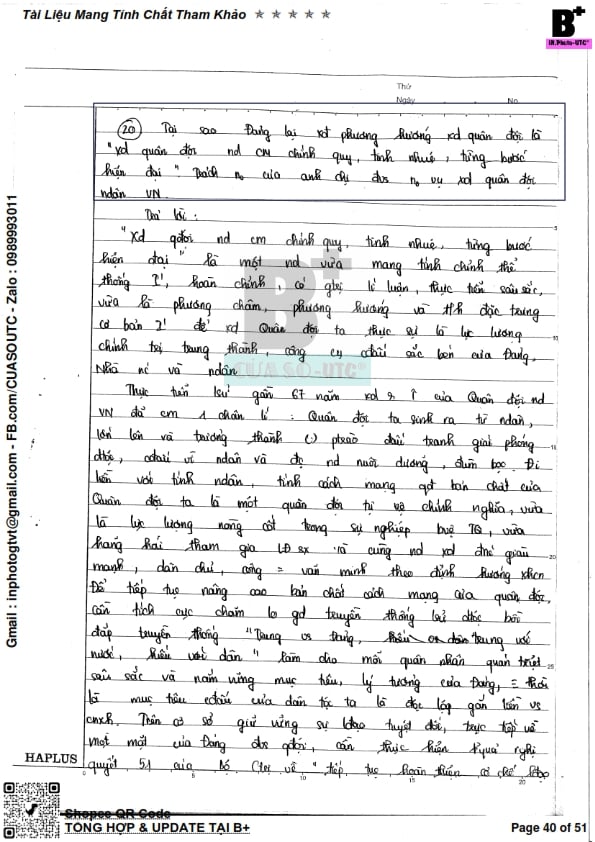 Tài Liệu Mang Tính Chất Tham Khảo ★ ★ ★ ★ ★
B+
IN.Photo-UTC
Thứ
Ngày No.
20 Tại sao Đảng lại xđ phương hướng xd quân đội là
"xd quân đội nd CM chính quy, tinh nhuệ, từng bước
hiện đại" Trách no của anh chị đvs no vụ xd quân đội
ndân VN
Trả lời:
"Xd qđội nd cm chính quy, tinh nhuệ, từng bước
hiện đại" là một nd vừa mang tính chỉnh thể
thống I, hoàn chỉnh, có gtrị lí luận, thực tiễn sâu sắc,
vừa là phương châm, phương hướng và đặc trưng
cơ bản I để xd Quân đội ta thực sự là lực lượng
chính trị trung thành, công cụ sắc bén của Đảng.
Nhà nc và ndân
B+
CỬA SỔ-UTC
Thực tiễn lsử gần 67 năm xd của Quân đội nd
VN đã cm 1 chân lí: Quân đội ta sinh ra từ ndân,
lớn lên và trưởng thành (:) ptrào đấu tranh giải phóng
dtộc, cđấu vì ndân và đc nd nuôi dưỡng, đùm bọc. Đi
liền với tính ndân, tính cách mạng qđ bản chất của
Quân đội ta là một quân đội tự vệ chính nghĩa, vừa
là lực lượng nòng cốt trong sự nghiệp bvệ TQ, vừa
hăng hái tham gia LĐ sx và cùng nd xd giàu
mạnh, dân chủ, công = văn minh theo định hướng xhcn
Để tiếp tục nâng cao bản chất cách mạng của quân đội,
cần tích cực chăm lo gd truyền thống lsử dtộc bồi
đắp truyền thống "Trung vs Đảng, trung với
nước, hiếu với dân" làm cho mỗi quân nhân quán triệt
sâu sắc và nắm vững mục tiêu, lý tưởng của Đảng, thời
là mục tiêu cđấu của dân tộc ta là độc lập gắn liền vs
cnxh. Trên cơ sở giữ vững sự lđạo tuyệt đối, trực tiếp về
mọi mặt của Đảng đvs qđội, cần thực hiện nghị
quyết 51 của Bộ Ctrị về "tiếp tục hoàn thiện cơ chế lđạo
5
10
15
20
25
0 5 10 15 20
HAPLUS
Gmail : inphotogtvt@gmail.com - FB.com/CUASOUTC - Zalo : 0989993011
Shopee QR Code
TỔNG HỢP & UPDATE TẠI B+
Page 40 of 51